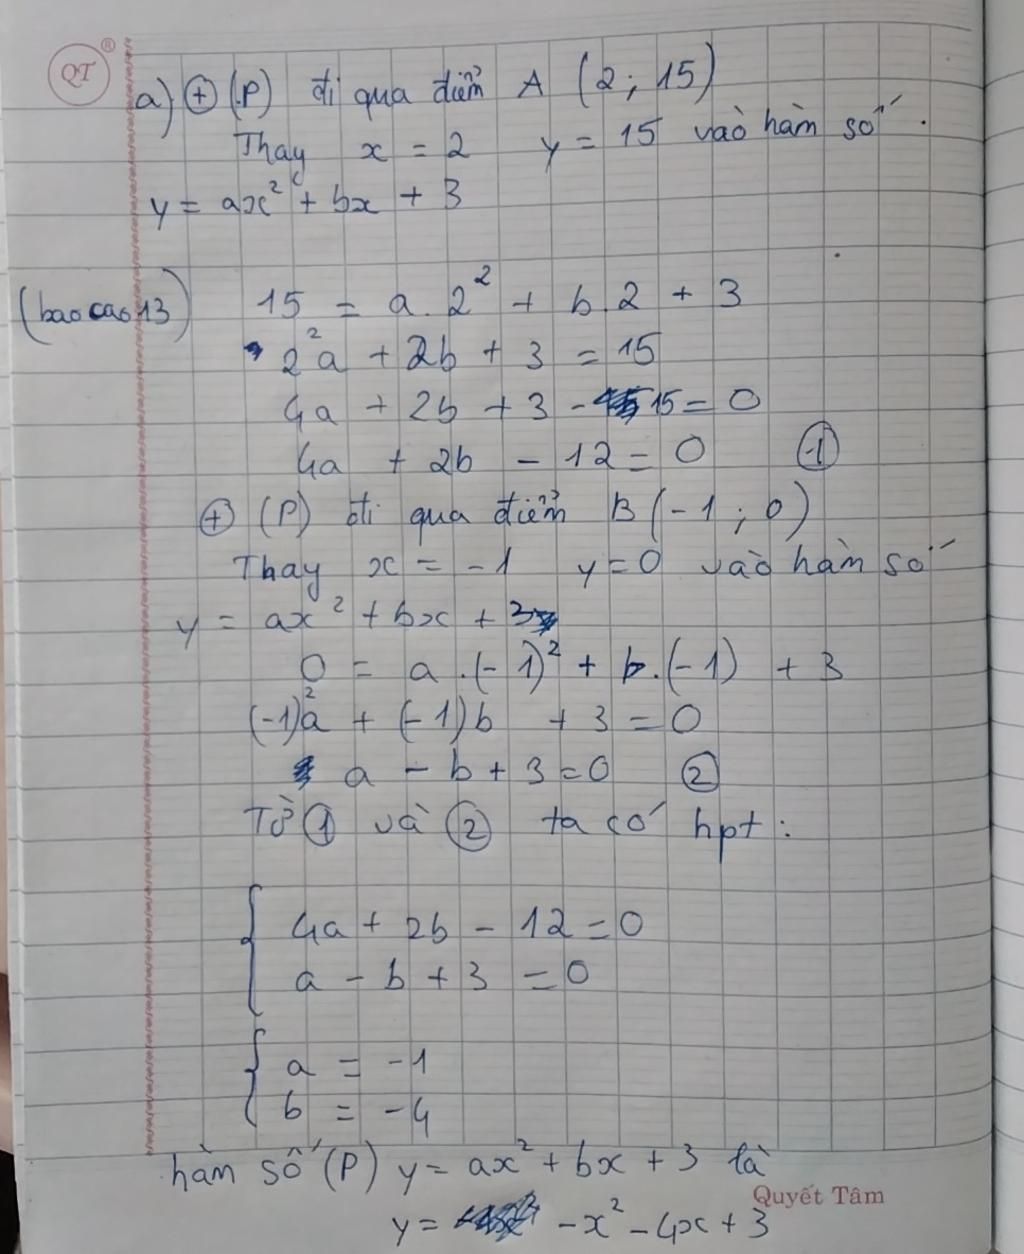 QT ®
a) ⊕ (P) đi qua điểm A (2; 15)
Thay x = 2 y = 15 vào hàm số
y = ax² + bx + 3
15 = a.2² + b.2 + 3
(bao cao 13)
2²a + 2b + 3 = 15
4a + 2b + 3 - 15 = 0
4a + 2b - 12 = 0 ①
⊕ (P) đi qua điểm B (-1; 0)
Thay x = -1 y = 0 vào hàm số
y = ax² + bx + 3
0 = a.(-1)² + b.(-1) + 3
(-1)²a + (-1)b + 3 = 0
a - b + 3 = 0 ②
Từ ① và ② ta có hpt:
4a + 2b - 12 = 0
a - b + 3 = 0
a = -1
b = -4
hàm số (P) y = ax² + bx + 3 là
Quyết Tâm
y = -x² - 4x + 3